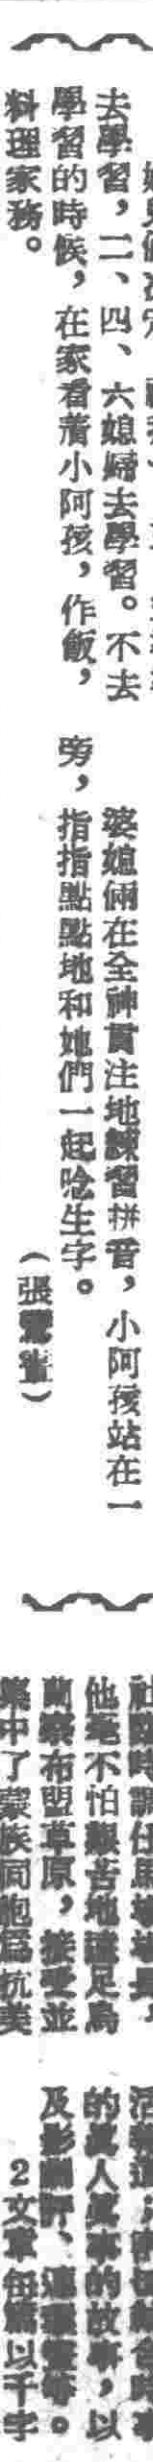 去學習，二、四、六媳婦去學習。不去
學習的時候，在家看着小阿孩，作飯，
料理家務。
婆媳倆在全神貫注地練習拼音，小阿孩站在一
旁，指指點點地和她們一起唸生字。
（張
他毫不怕艱苦地遠足烏
蘭察布盟草原，接受並
集中了蒙族同胞爲抗美
的真人真事的故事，以
及影劇評、連環畫等。
2文章每篇以千字